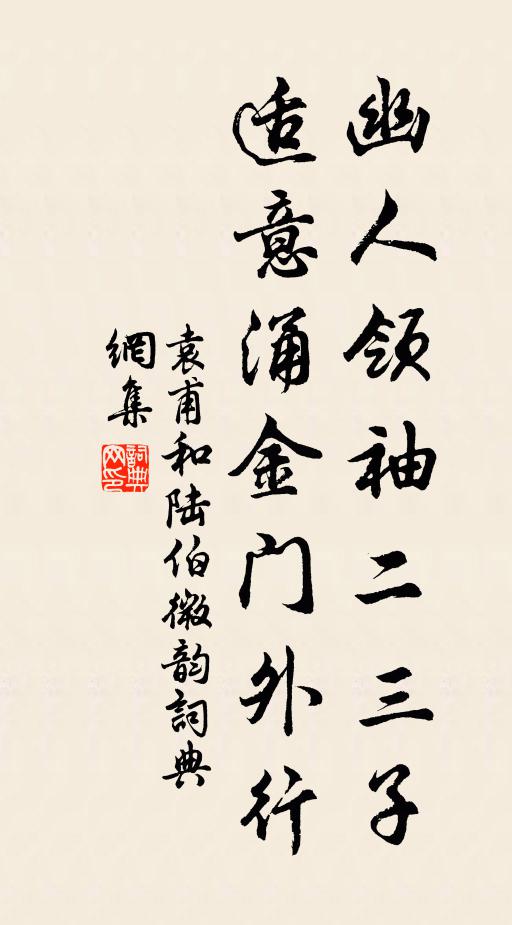 幽人領袖二三子
适意涌金門外行
袁甫和陆伯微韵詞典
網集
詞典
网印